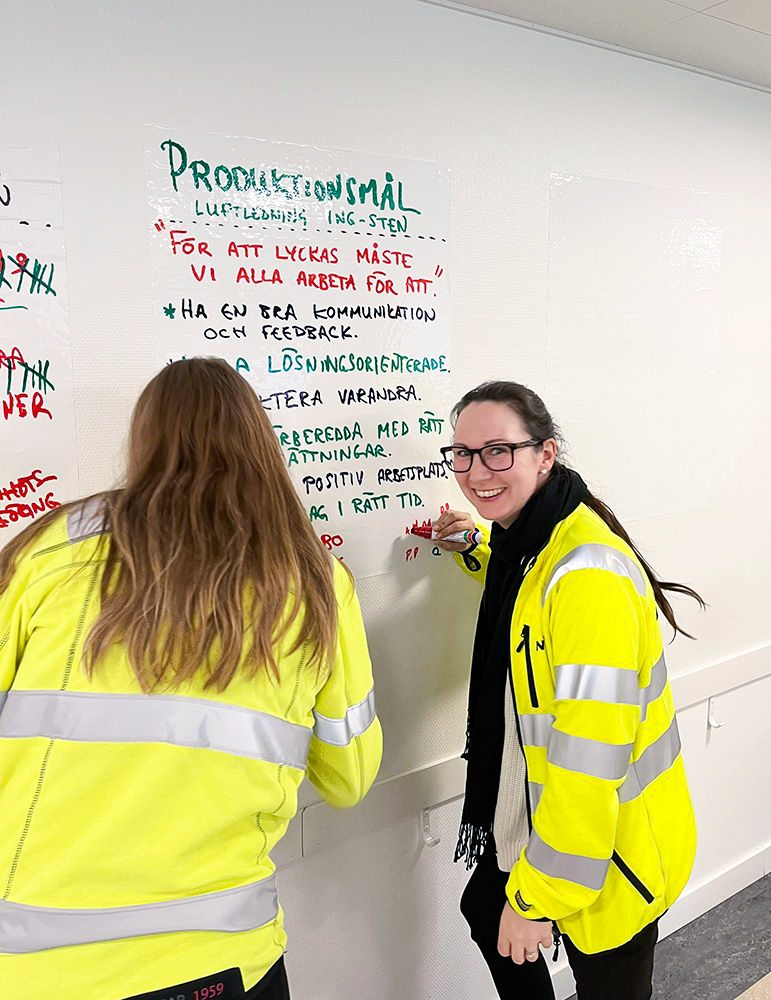 PRODUKTIONSMÅL
LUFTLEDNING ING-STEN
"FÖR ATT LYCKAS MÅSTE
VI ALLA ARBETA FÖR ATT."
*HA EN BRA KOMMUNIKATION
OCH FEEDBACK.
A LÖSNINGSORIENTERADE.
KTERA VARANDRA.
RBEREDDA MED RÄTT
ÄTTNINGAR.
POSITIV ARBETSPLATS.
AG I RÄTT TID.
RA
NER
RO
P.P
1959